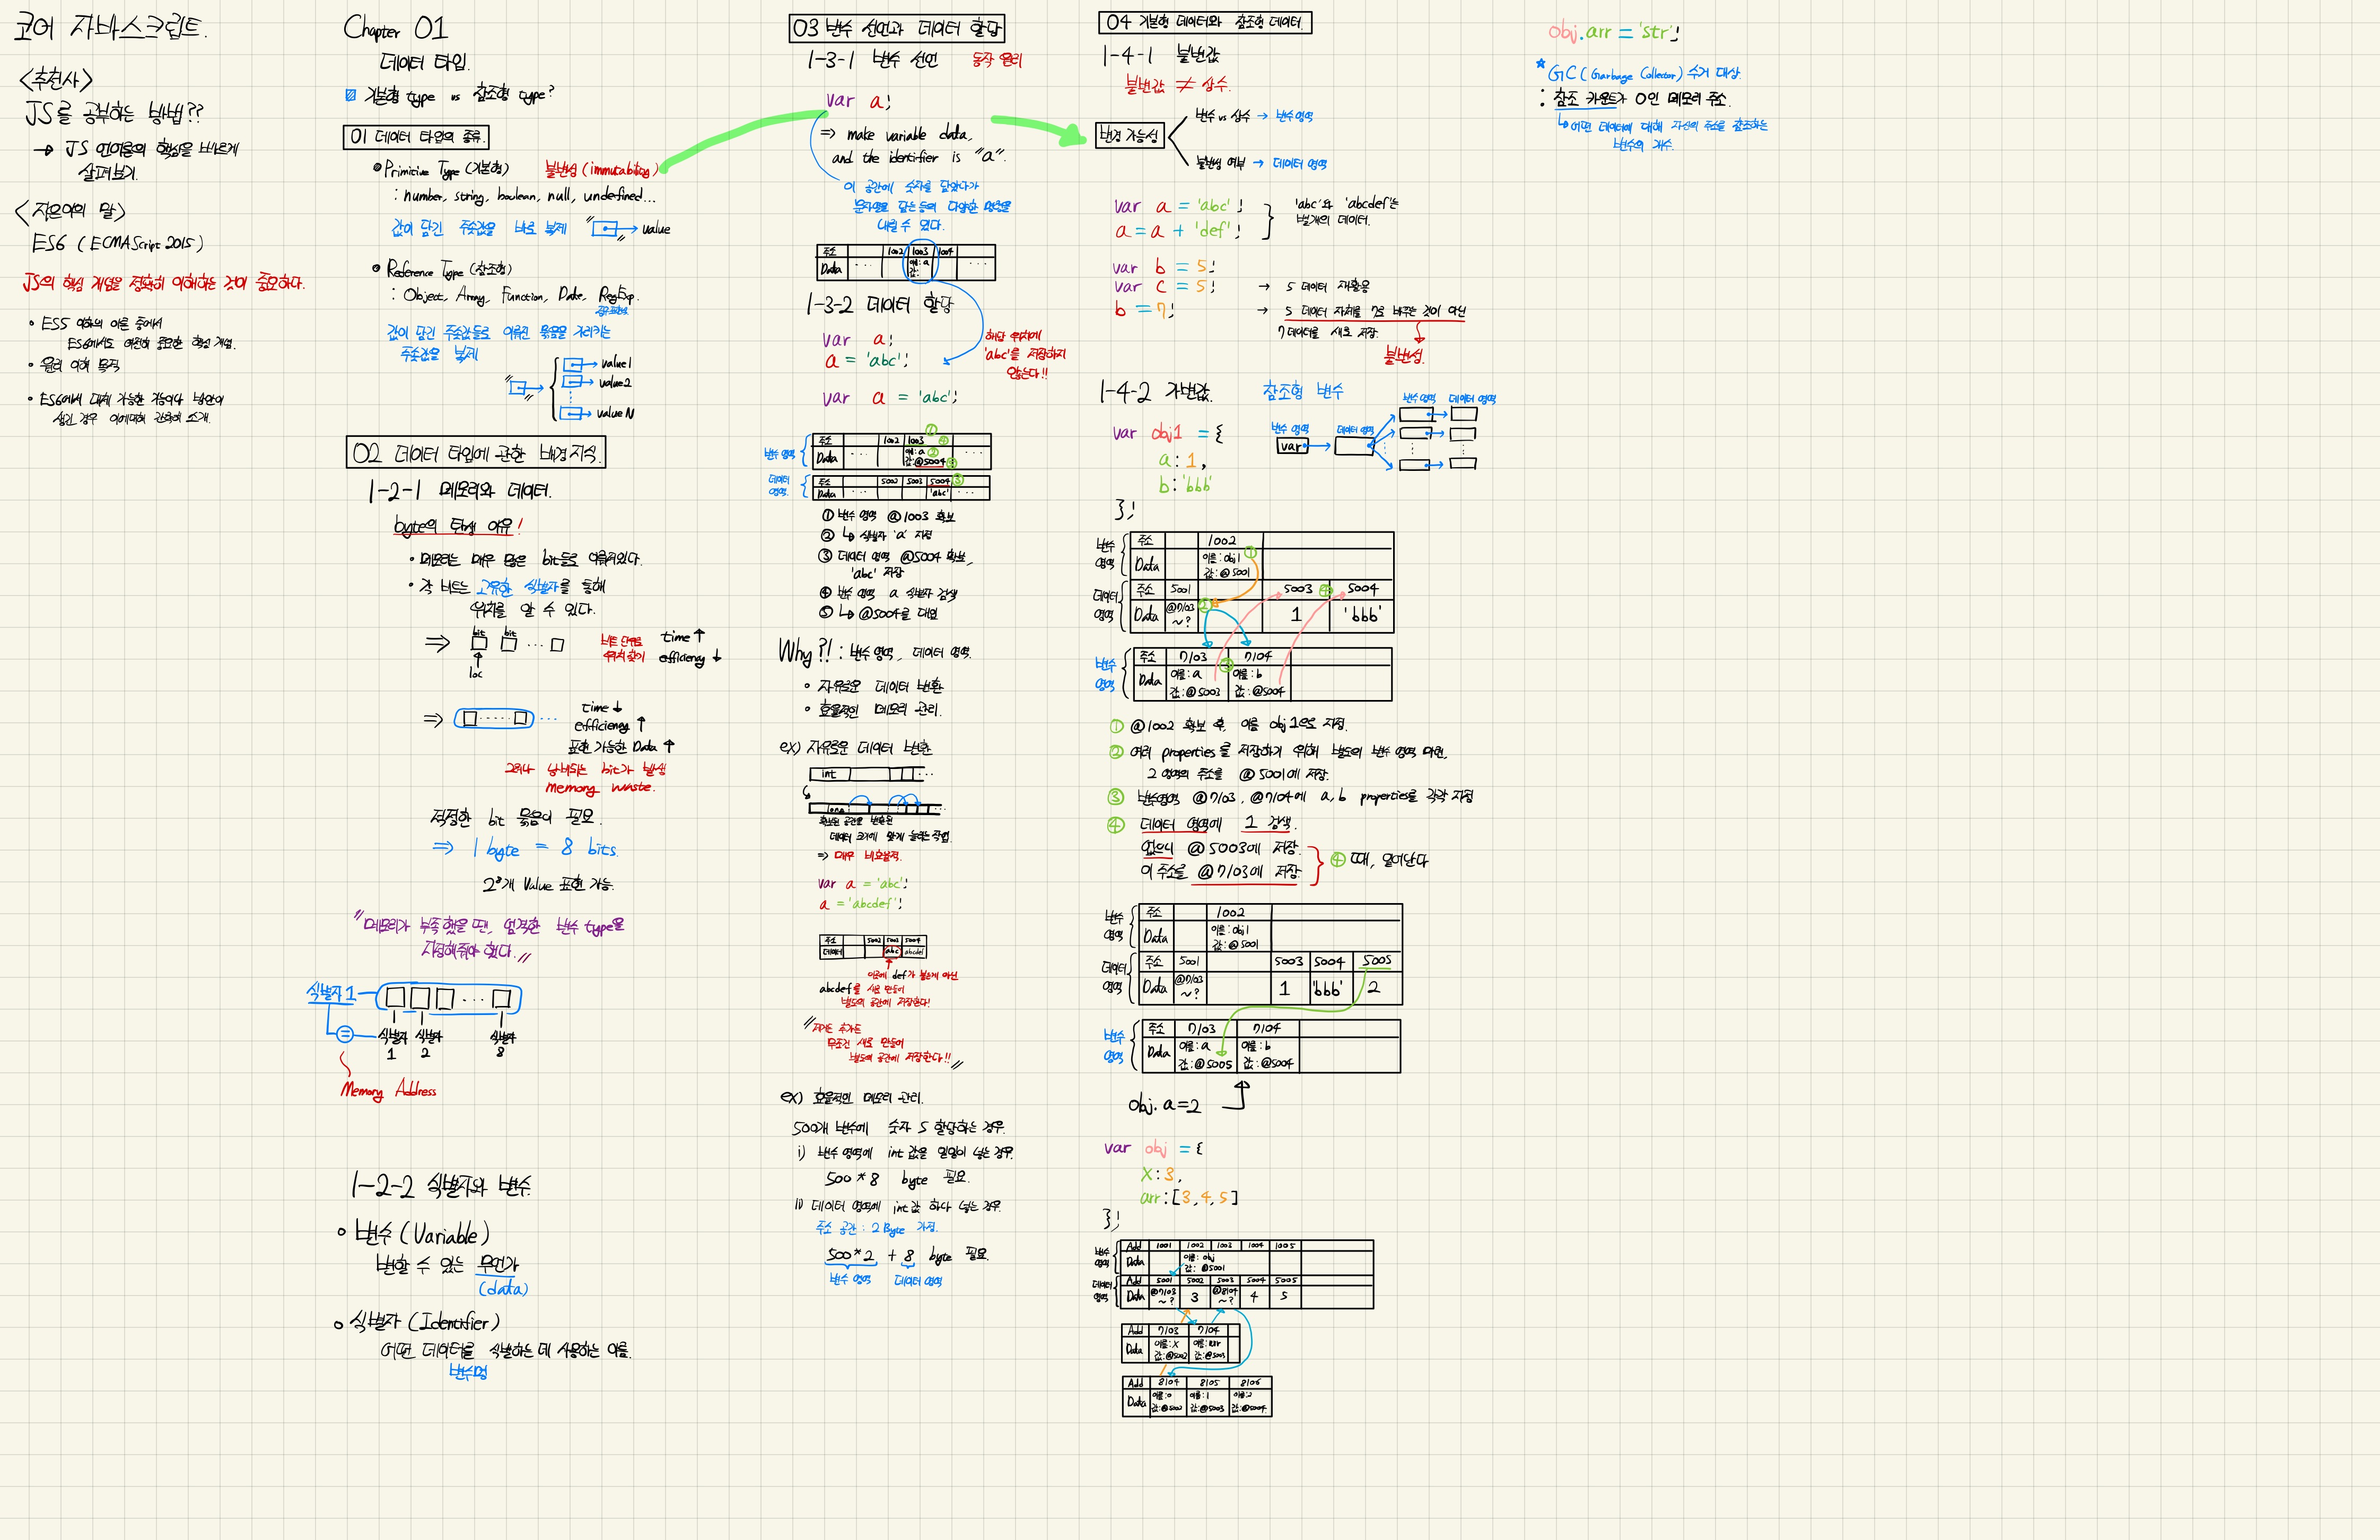 코어 자바스크립트.
<추천사>
JS를 공부하는 방법??
→ JS 언어들의 핵심을 빠르게
살펴보기.
<지은이의 말>
ES6 (ECMAScript 2015)
JS의 핵심 개념을 정확히 이해하는 것이 중요하다.
• ES5 이하의 이론 중에서
ES6에서도 여전히 중요한 핵심 개념.
• 원리 이해 목적
• ES6에서 대체 가능한 기능이나 방안이
생긴 경우 이에대해 간략히 소개.
Chapter 01
데이터 타입.
기본형 type vs 참조형 type?
01 데이터 타입의 종류.
Primitive Type (기본형) 불변성 (immutability)
: number, string, boolean, null, undefined...
값이 담긴 주솟값을 바로 복제 " → value "
Reference Type (참조형)
: Object, Array, Function, Date, RegExp.
정규표현식
값이 담긴 주솟값들로 이뤄진 묶음을 가리키는
주솟값을 복제
value 1
value 2
value N
02 데이터 타입에 관한 배경지식.
1-2-1 메모리와 데이터.
byte의 탄생 이유!
• 메모리는 매우 많은 bit들로 이뤄져있다.
• 각 비트는 고유한 식별자를 통해
위치를 알 수 있다.
⇒ bit bit ... 비트 단위로 time ↑
위치 찾기 efficiency ↓
loc
⇒ ..... ... time ↓
efficiency ↑
표현 가능한 Data ↑
그러나 낭비되는 bit가 발생
Memory Waste.
적정한 bit 묶음이 필요.
⇒ 1 byte = 8 bits.
2⁸개 Value 표현 가능.
"메모리가 부족했을 땐, 엄격한 변수 type을
지정해줘야 했다."
식별자 1 ...
= 식별자 식별자 식별자
1 2 8
Memory Address
1-2-2 식별자와 변수.
변수 (Variable)
변할 수 있는 무언가
(data)
식별자 (Identifier)
어떤 데이터를 식별하는 데 사용하는 이름.
변수명
03 변수 선언과 데이터 할당
1-3-1 변수 선언 동작 원리
var a;
⇒ make variable data,
and the identifier is "a".
이 공간에 숫자를 담았다가
문자열을 담는 등의 다양한 명령을
내릴 수 있다.
주소 1002 1003 1004
Data ... 이름: a ...
값:
1-3-2 데이터 할당
var a;
a = 'abc';
해당 위치에
'abc'를 저장하지
않는다!!
var a = 'abc';
①
변수 영역 주소 1002 1003 ④
Data ... 이름: a ② ...
값: @5004 ⑤
데이터 영역. 주소 5002 5003 5004 ③
Data ... 'abc' ...
① 변수 영역 @1003 확보
② ↳ 식별자 'a' 지정
③ 데이터 영역 @5004 확보,
'abc' 저장
④ 변수 영역 a 식별자 검색
⑤ ↳ @5004를 대입
Why?! : 변수 영역, 데이터 영역.
• 자유로운 데이터 변환
• 효율적인 메모리 관리.
ex) 자유로운 데이터 변환
int ...
long ...
확보된 공간을 변환된
데이터 크기에 맞게 늘리는 작업.
⇒ 매우 비효율적.
var a = 'abc';
a = 'abcdef';
주소 5002 5003 5004
데이터 abc abcdef
이곳에 def가 붙는게 아닌
abcdef를 새로 만들어
별도의 공간에 저장한다!
무조건 새로 만들어
별도의 공간에 저장한다!! "
ex) 효율적인 메모리 관리.
500개 변수에 숫자 5 할당하는 경우.
i) 변수 영역에 int 값을 일일이 넣는 경우.
500 * 8 byte 필요.
ii) 데이터 영역에 int 값 하나 넣는 경우.
주소 공간 : 2 Byte 가정.
500*2 + 8 byte 필요.
변수 영역 데이터 영역
04 기본형 데이터와 참조형 데이터.
1-4-1 불변값
불변값 ≠ 상수.
변경 가능성
변수 vs 상수 → 변수 영역
불변성 여부 → 데이터 영역
var a = 'abc';
a = a + 'def';
'abc'와 'abcdef'는
별개의 데이터.
var b = 5;
var c = 5; → 5 데이터 재활용
b = 7; → 5 데이터 자체를 7로 바꾸는 것이 아닌
7 데이터를 새로 저장.
불변성.
1-4-2 가변값. 참조형 변수
변수 영역 데이터 영역
변수 영역 데이터 영역
var
var obj1 = {
a : 1,
b : 'bbb'
};
변수 영역 주소 1002
Data 이름: obj1 ①
값: @5001
데이터 영역 주소 5001 5003 ④ 5004
Data @7103 ~? ② 1 'bbb'
변수 영역 주소 7103 7104
Data 이름: a ③ 이름: b
값: @5003 값: @5004
① @1002 확보 후, 이름 obj1으로 지정.
② 여러 properties를 저장하기 위해 별도의 변수 영역 마련,
그 영역의 주소를 @5001에 저장.
③ 변수영역 @7103, @7104에 a, b properties를 각각 지정
④ 데이터 영역에 1 검색.
없으니 @5003에 저장.
이 주소를 @7103에 저장.
④ 때, 일어난다
변수 영역 주소 1002
Data 이름: obj1
값: @5001
데이터 영역 주소 5001 5003 5004 5005
Data @7103 ~? 1 'bbb' 2
변수 영역 주소 7103 7104
Data 이름: a 이름: b
값: @5005 값: @5004
obj. a=2
var obj = {
x : 3,
arr : [3, 4, 5]
};
변수 영역 Add 1001 1002 1003 1004 1005
Data 이름: obj
값: @5001
데이터 영역 Add 5001 5002 5003 5004 5005
Data @7103 ~? 3 @8104 ~? 4 5
Add 7103 7104
Data 이름: x 이름: arr
값: @5002 값: @5003
Add 8104 8105 8106
Data 이름: 0 이름: 1 이름: 2
값: @5002 값: @5003 값: @5004
obj.arr = 'str';
* GC (Garbage Collector) 수거 대상.
: 참조 카운트가 0인 메모리 주소.
↳ 어떤 데이터에 대해 자신의 주소를 참조하는
변수의 개수.